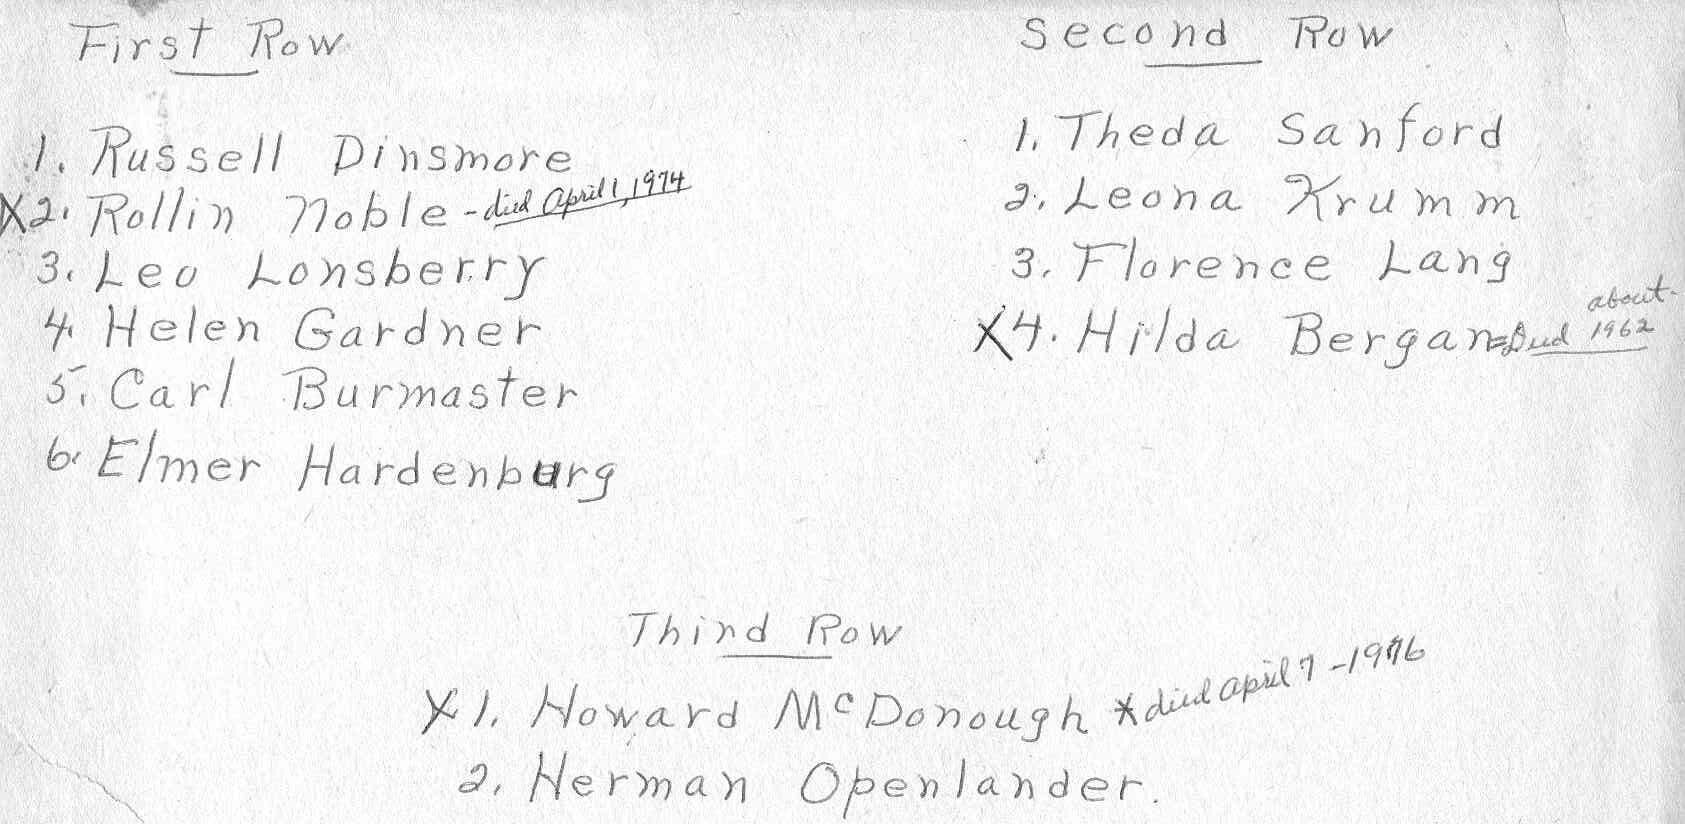 First Row
1. Russell Dinsmore
X2. Rollin Noble - died April 1, 1974
3. Leo Lonsberry
4. Helen Gardner
5. Carl Burmaster
6. Elmer Hardenburg
Second Row
1. Theda Sanford
2. Leona Krumm
3. Florence Lang
X4. Hilda Bergan = Died about 1962
Third Row
X 1. Howard McDonough * died April 7 - 1976
2. Herman Openlander.